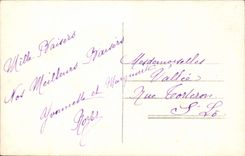 Mille Baisers
Nos Meilleurs Baisers
Yvonnette et Marguerite
Mesdemoiselles
Vallée
Rue Torteron
St Lô